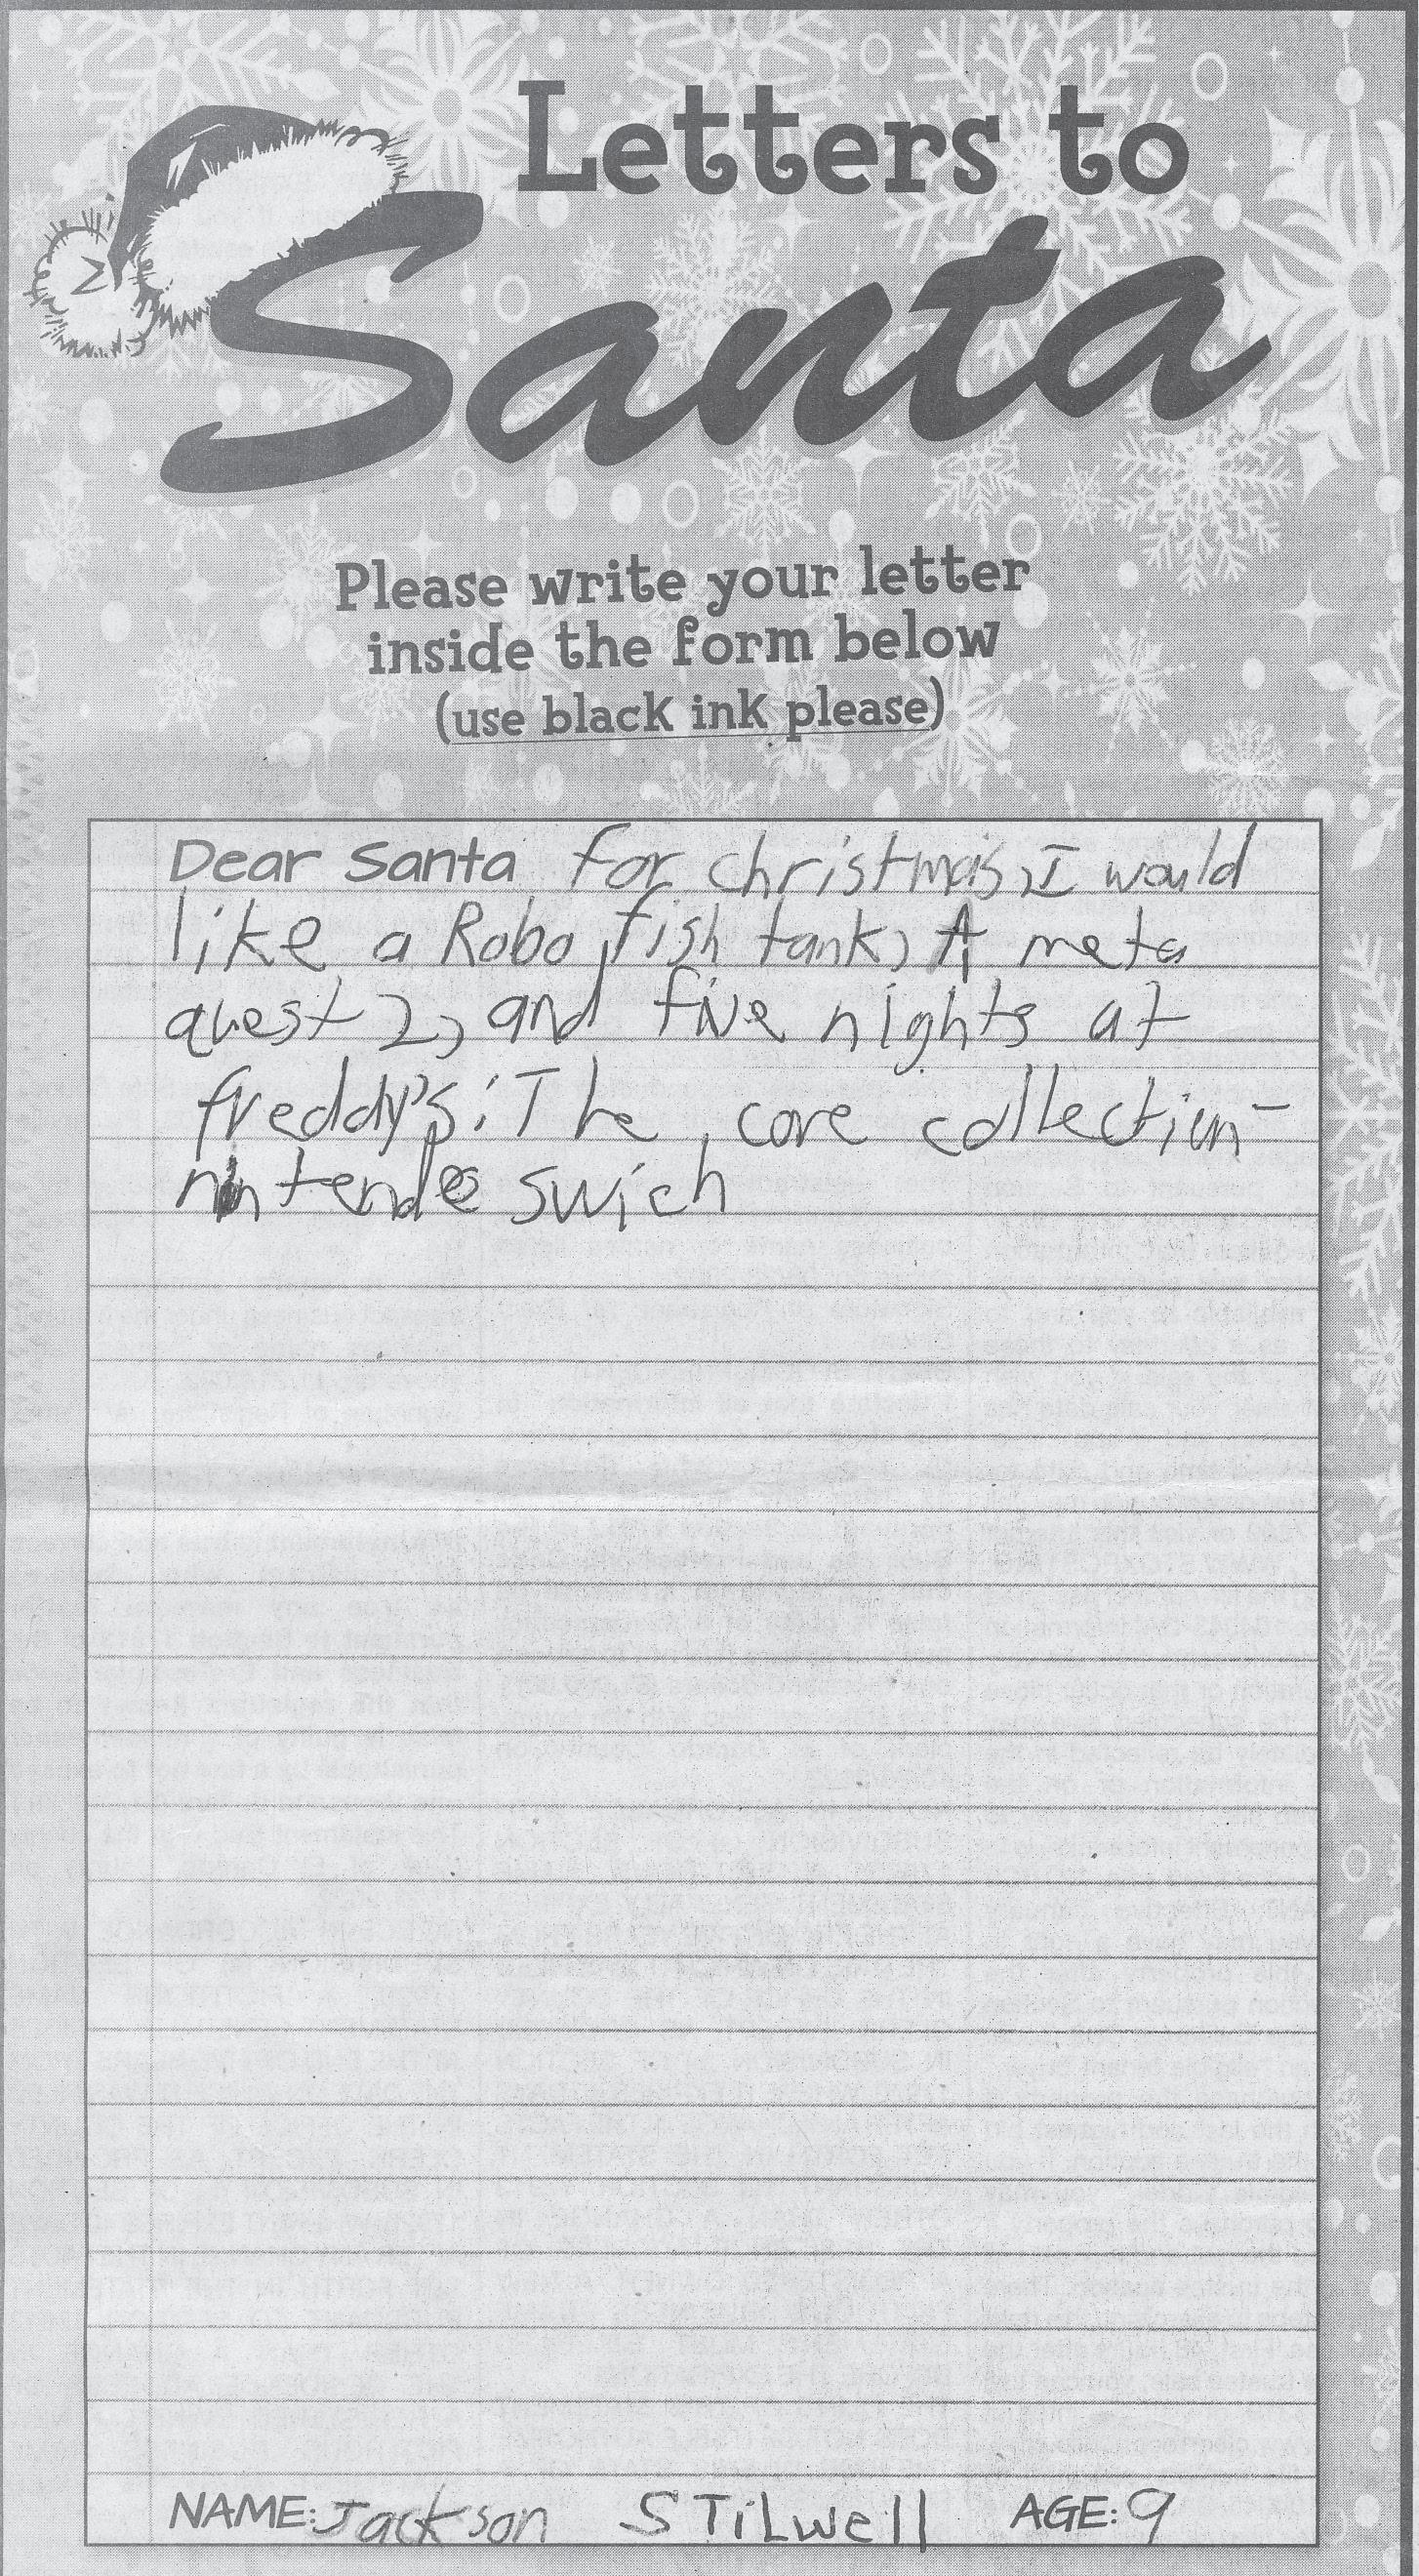 Letters to
Santa
Please write your letter
inside the form below
(use black ink please)
Dear Santa for christmas, I would
like a Robo fish tank, A meta
quest 2, and five nights at
freddy's: The core collection-
nintendo swich
NAME: Jackson STiLwell AGE: 9